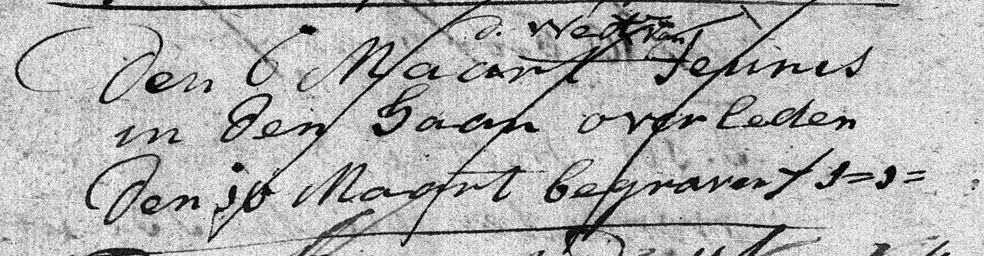 d. Wed: van
Den 6 Maart Teunis
in den Haan overleden
Den 10 Maart begraven f 3-3-